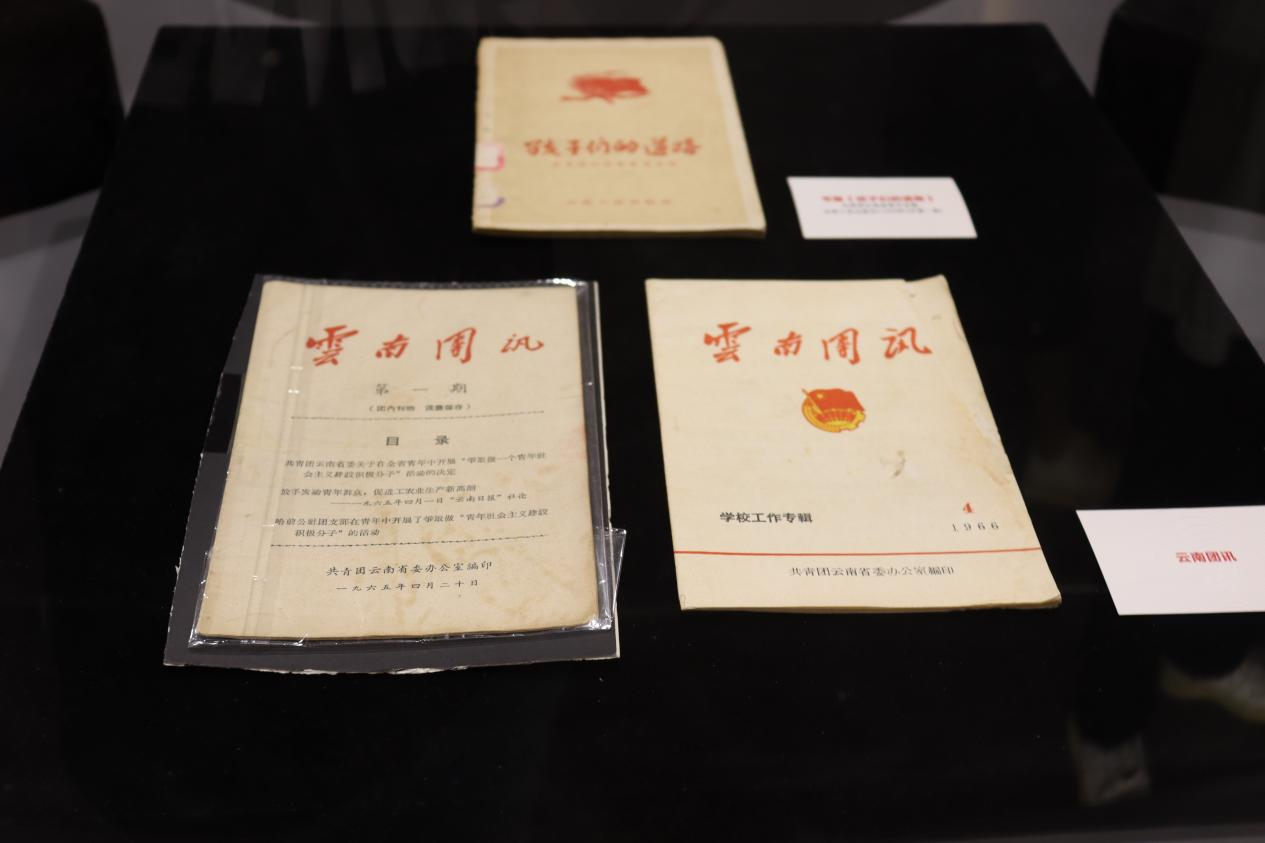 孩子们的道路
雲南团讯
第一期
（团内刊物 谨慎保存）
目 录
共青团云南省委关于在全省青年中开展“争取做一个青年社
会主义建設积极分子”活动的决定
放手发动青年群众，促进工农业生产新高潮
——一九六五年四月一日“云南日报”社论
哈前公社团支部在青年中开展了争取做“青年社会主义建設
积极分子”的活动
共青团云南省委办公室編印
一九六五年四月二十日
雲南团讯
学校工作专輯
4
1966
共青团云南省委办公室編印
云南团讯